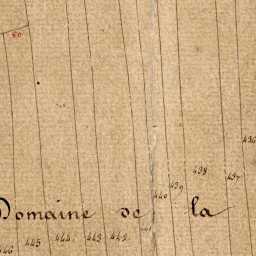 50
436
437
438
439
440
Domaine de la
441
442
443
444
445
446